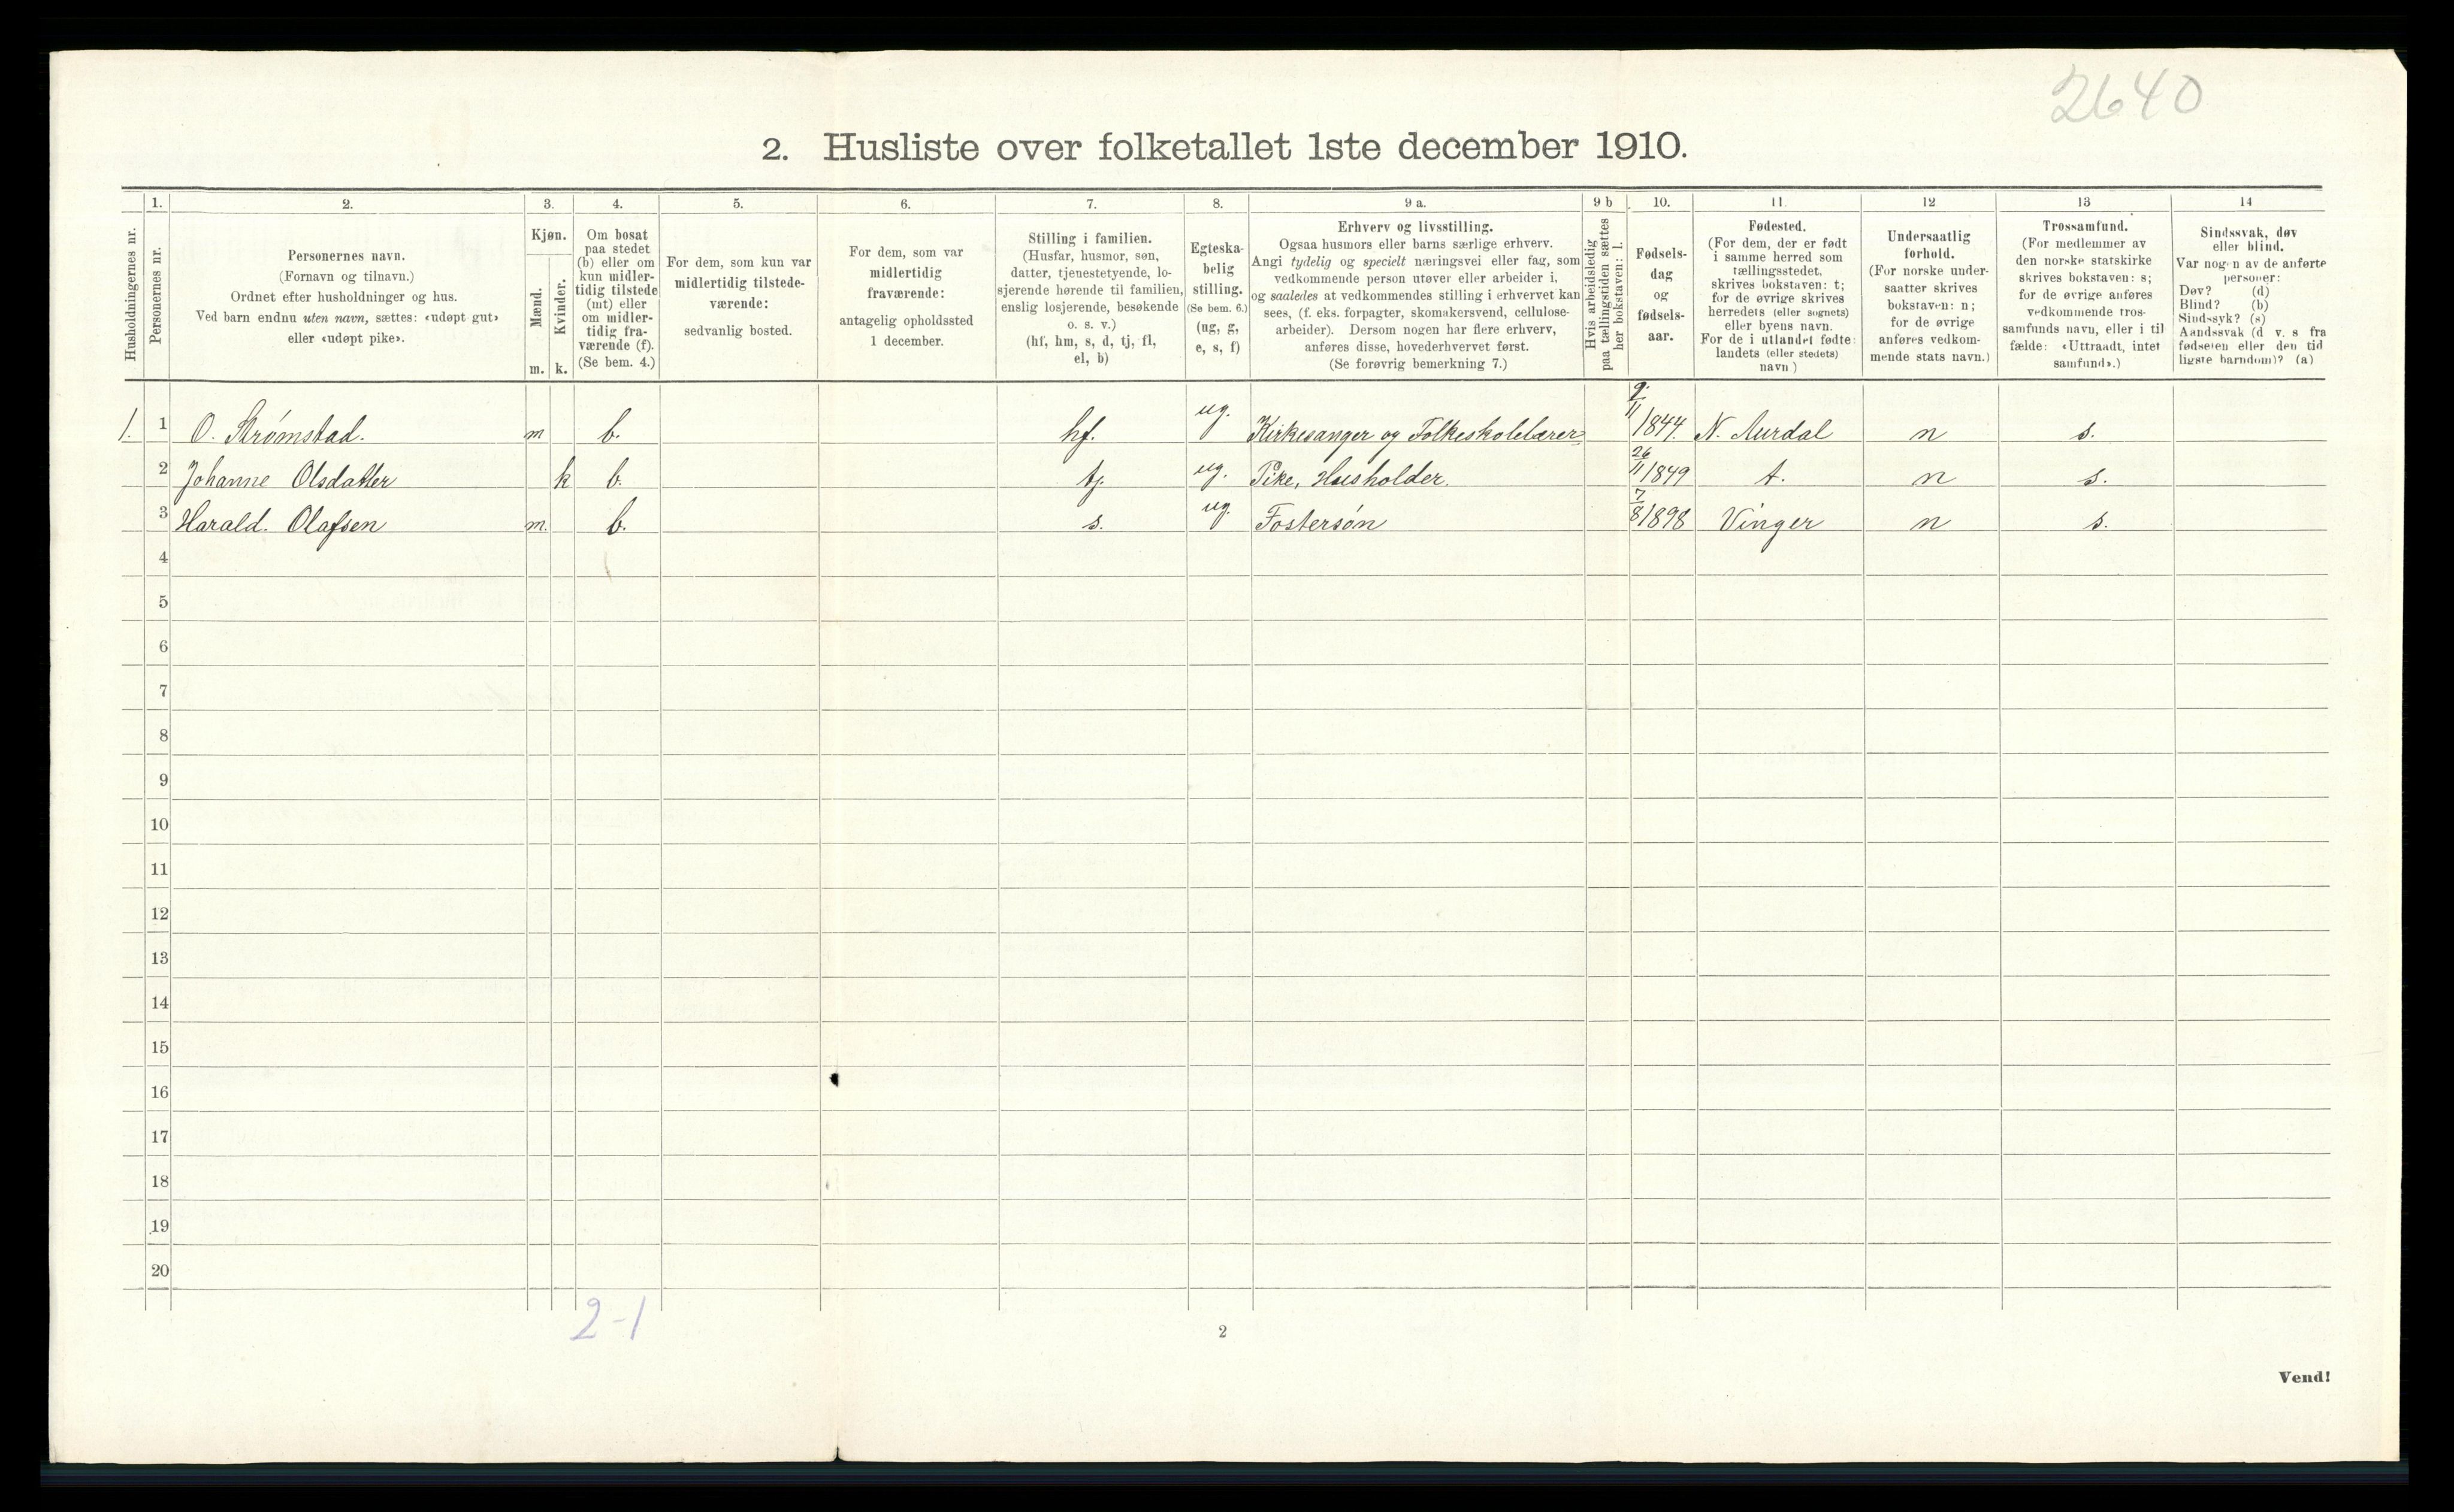 2640
2. Husliste over folketallet 1ste december 1910.
1. 2. 3. 4. 5. 6. 7. 8. 9 a. 9 b 10. 11. 12 13 14
Husholdningernes nr.
Personernes nr.
Personernes navn.
(Fornavn og tilnavn.)
Ordnet efter husholdninger og hus.
Ved barn endnu uten navn, sættes: «udøpt gut»
eller «udøpt pike».
Kjøn.
Mænd.
Kvinder.
m. k.
Om bosat
paa stedet
(b) eller om
kun midler-
tidig tilstede
(mt) eller
om midler-
tidig fra-
værende (f).
(Se bem. 4.)
For dem, som kun var
midlertidig tilstede-
værende:
sedvanlig bosted.
For dem, som var
midlertidig
fraværende:
antagelig opholdssted
1 december.
Stilling i familien.
(Husfar, husmor, søn,
datter, tjenestetyende, lo-
sjerende hørende til familien,
enslig losjerende, besøkende
o. s. v.)
(hf, hm, s, d, tj, fl,
el, b)
Egteska-
belig
stilling.
(Se bem. 6.)
(ug, g,
e, s, f)
Erhverv og livsstilling.
Ogsaa husmors eller barns særlige erhverv.
Angi tydelig og specielt næringsvei eller fag, som
vedkommende person utøver eller arbeider i,
og saaledes at vedkommendes stilling i erhvervet kan
sees, (f. eks. forpagter, skomakersvend, cellulose-
arbeider). Dersom nogen har flere erhverv,
anføres disse, hovederhvervet først.
(Se forøvrig bemerkning 7.)
Hvis arbeidsledig
paa tællingstiden sættes
her bokstaven: l.
Fødsels-
dag
og
fødsels-
aar.
Fødested.
(For dem, der er født
i samme herred som
tællingsstedet,
skrives bokstaven: t;
for de øvrige skrives
herredets (eller sognets)
eller byens navn.
For de i utlandet fødte:
landets (eller stedets)
navn)
Undersaatlig
forhold.
(For norske under-
saatter skrives
bokstaven: n;
for de øvrige
anføres vedkom-
mende stats navn.)
Trossamfund.
(For medlemmer av
den norske statskirke
skrives bokstaven: s;
for de øvrige anføres
vedkommende tros-
samfunds navn, eller i til
fælde: «Uttraadt, intet
samfund».)
Sindssvak, døv
eller blind.
Var nogen av de anførte
personer:
Døv? (d)
Blind? (b)
Sindssyk? (s)
Aandssvak (d v. s fra
fødselen eller den tid
ligste barndom)? (a)
1. 1 O. Strømstad. m b. hf. ug. Kirkesanger og Folkeskolelærer 9/11 1844. N. Aurdal n s.
2 Johanne Olsdatter k b. tj. ug. Pike, Husholder. 26/11 1849 t. n s.
3 Harald. Olafsen m. b. s. ug. Fostersøn 7/8 1898 Vinger n s.
4
5
6
7
8
9
10
11
12
13
14
15
16
17
18
19
20
2-1
2
Vend!